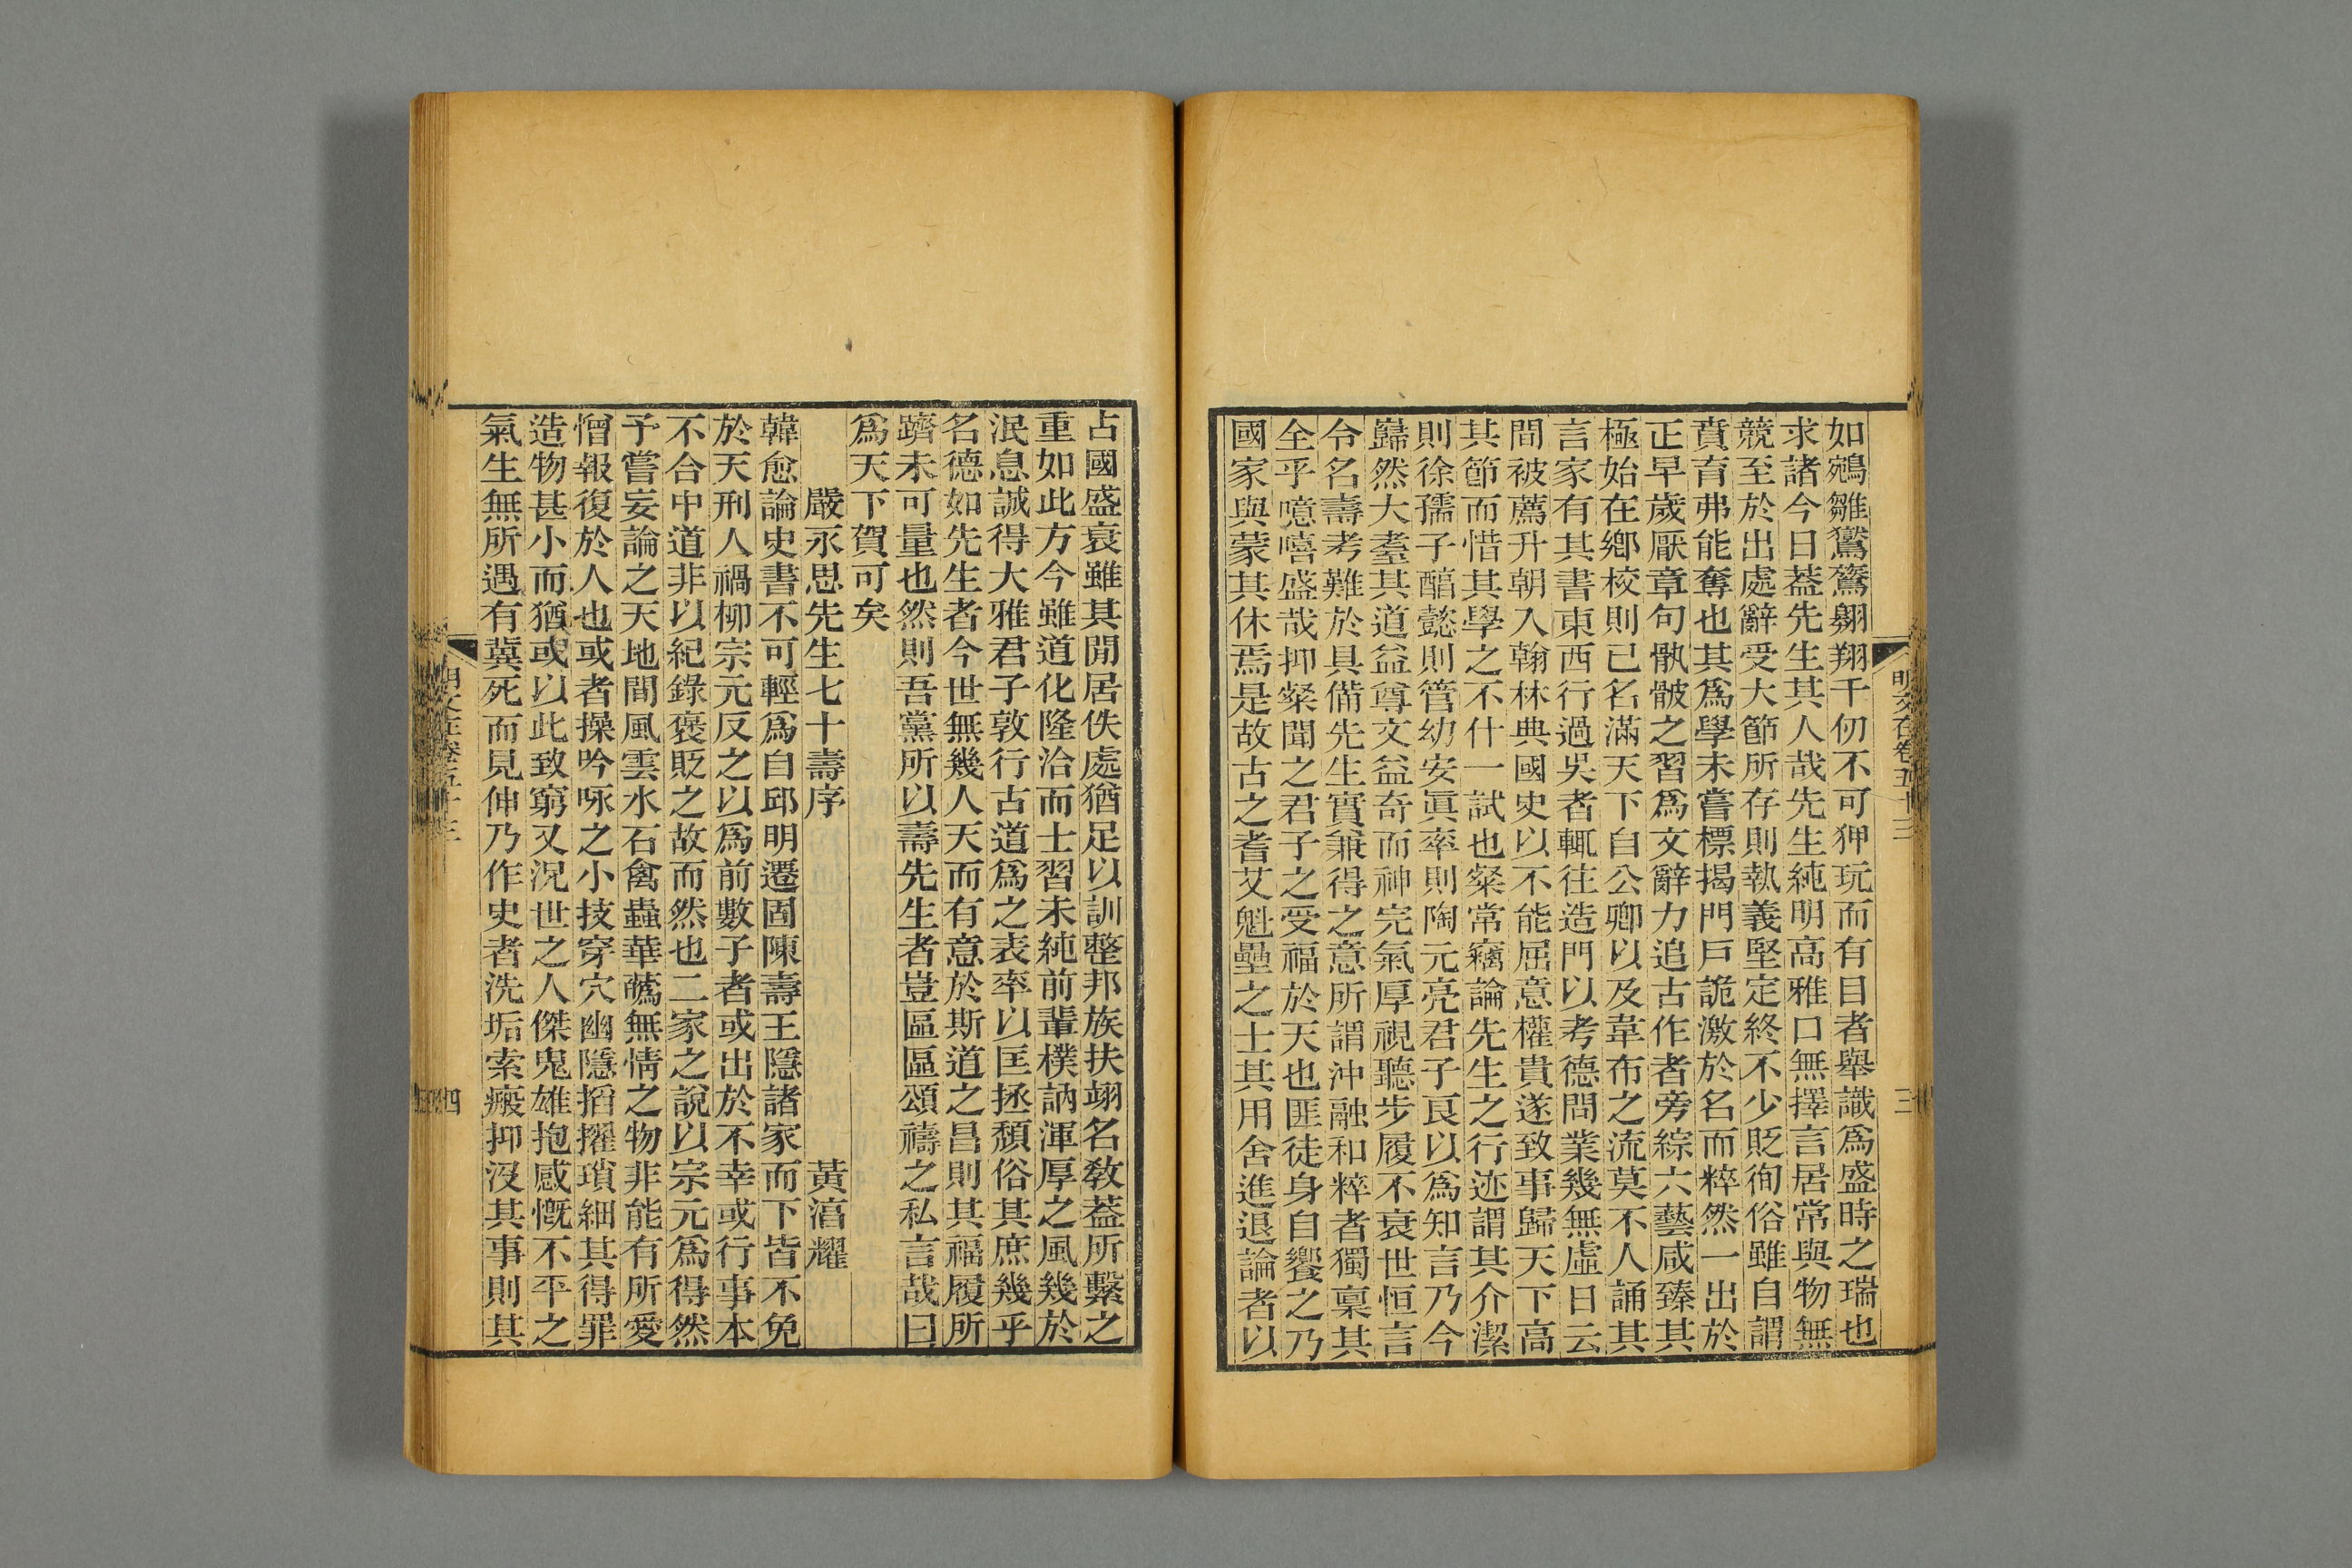 如鵷雛鸑鷟翱翔千仞不可狎玩而有目者舉識爲盛時之瑞也
求諸今日葢先生其人哉先生純明高雅口無擇言居常與物無
競至於出處辭受大節所存則執義堅定終不少貶徇俗雖自謂
賁育弗能奪也其爲學未嘗標揭門戶詭激於名而粹然一出於
正早歲厭章句骩骳之習爲文辭力追古作者旁綜六藝咸臻其
極始在鄉校則已名滿天下自公卿以及韋布之流莫不人誦其
言家有其書東西行過吳者輒往造門以考德問業幾無虛日云
間被薦升朝入翰林典國史以不能屈意權貴遂致事歸天下高
其節而惜其學之不什一試也粲常竊論先生之行迹謂其介潔
則徐孺子醞懿則管幼安眞率則陶元亮君子良以爲知言乃今
巋然大耋其道益尊文益奇而神完氣厚視聽步履不衰世恒言
令名壽考難於具備先生實兼得之意所謂沖融和粹者獨稟其
全乎噫嘻盛哉抑粲聞之君子之受福於天也匪徒身自饗之乃
國家與蒙其休焉是故古之耆艾魁壘之士其用舍進退論者以
明文在卷五十三
三
占國盛衰雖其閒居佚處猶足以訓整邦族扶翊名敎葢所繫之
重如此方今雖道化隆洽而士習未純前輩樸訥渾厚之風幾於
泯息誠得大雅君子敦行古道爲之表率以匡拯頹俗其庶幾乎
名德如先生者今世無幾人天而有意於斯道之昌則其福履所
躋未可量也然則吾黨所以壽先生者豈區區頌禱之私言哉曰
爲天下賀可矣
嚴永思先生七十壽序 黃淳耀
韓愈論史書不可輕爲自邱明遷固陳壽王隱諸家而下皆不免
於天刑人禍柳宗元反之以爲前數子者或出於不幸或行事本
不合中道非以紀錄褒貶之故而然也二家之說以宗元爲得然
予嘗妄論之天地間風雲水石禽蟲華蘤無情之物非能有所愛
憎報復於人也或者操吟咏之小技穿穴幽隱搯擢瑣細其得罪
造物甚小而猶或以此致窮又況世之人傑鬼雄抱感慨不平之
氣生無所遇有冀死而見伸乃作史者洗垢索瘢抑沒其事則其
明文在卷五十三
四